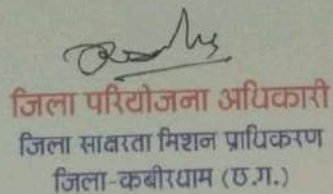 जिला परियोजना अधिकारी
जिला साक्षरता मिशन प्राधिकरण
जिला-कबीरधाम (छ.ग.)